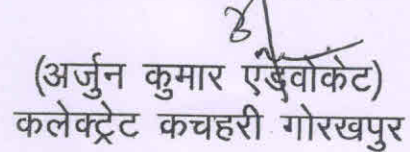 (अर्जुन कुमार एडवोकेट)
कलेक्ट्रेट कचहरी गोरखपुर